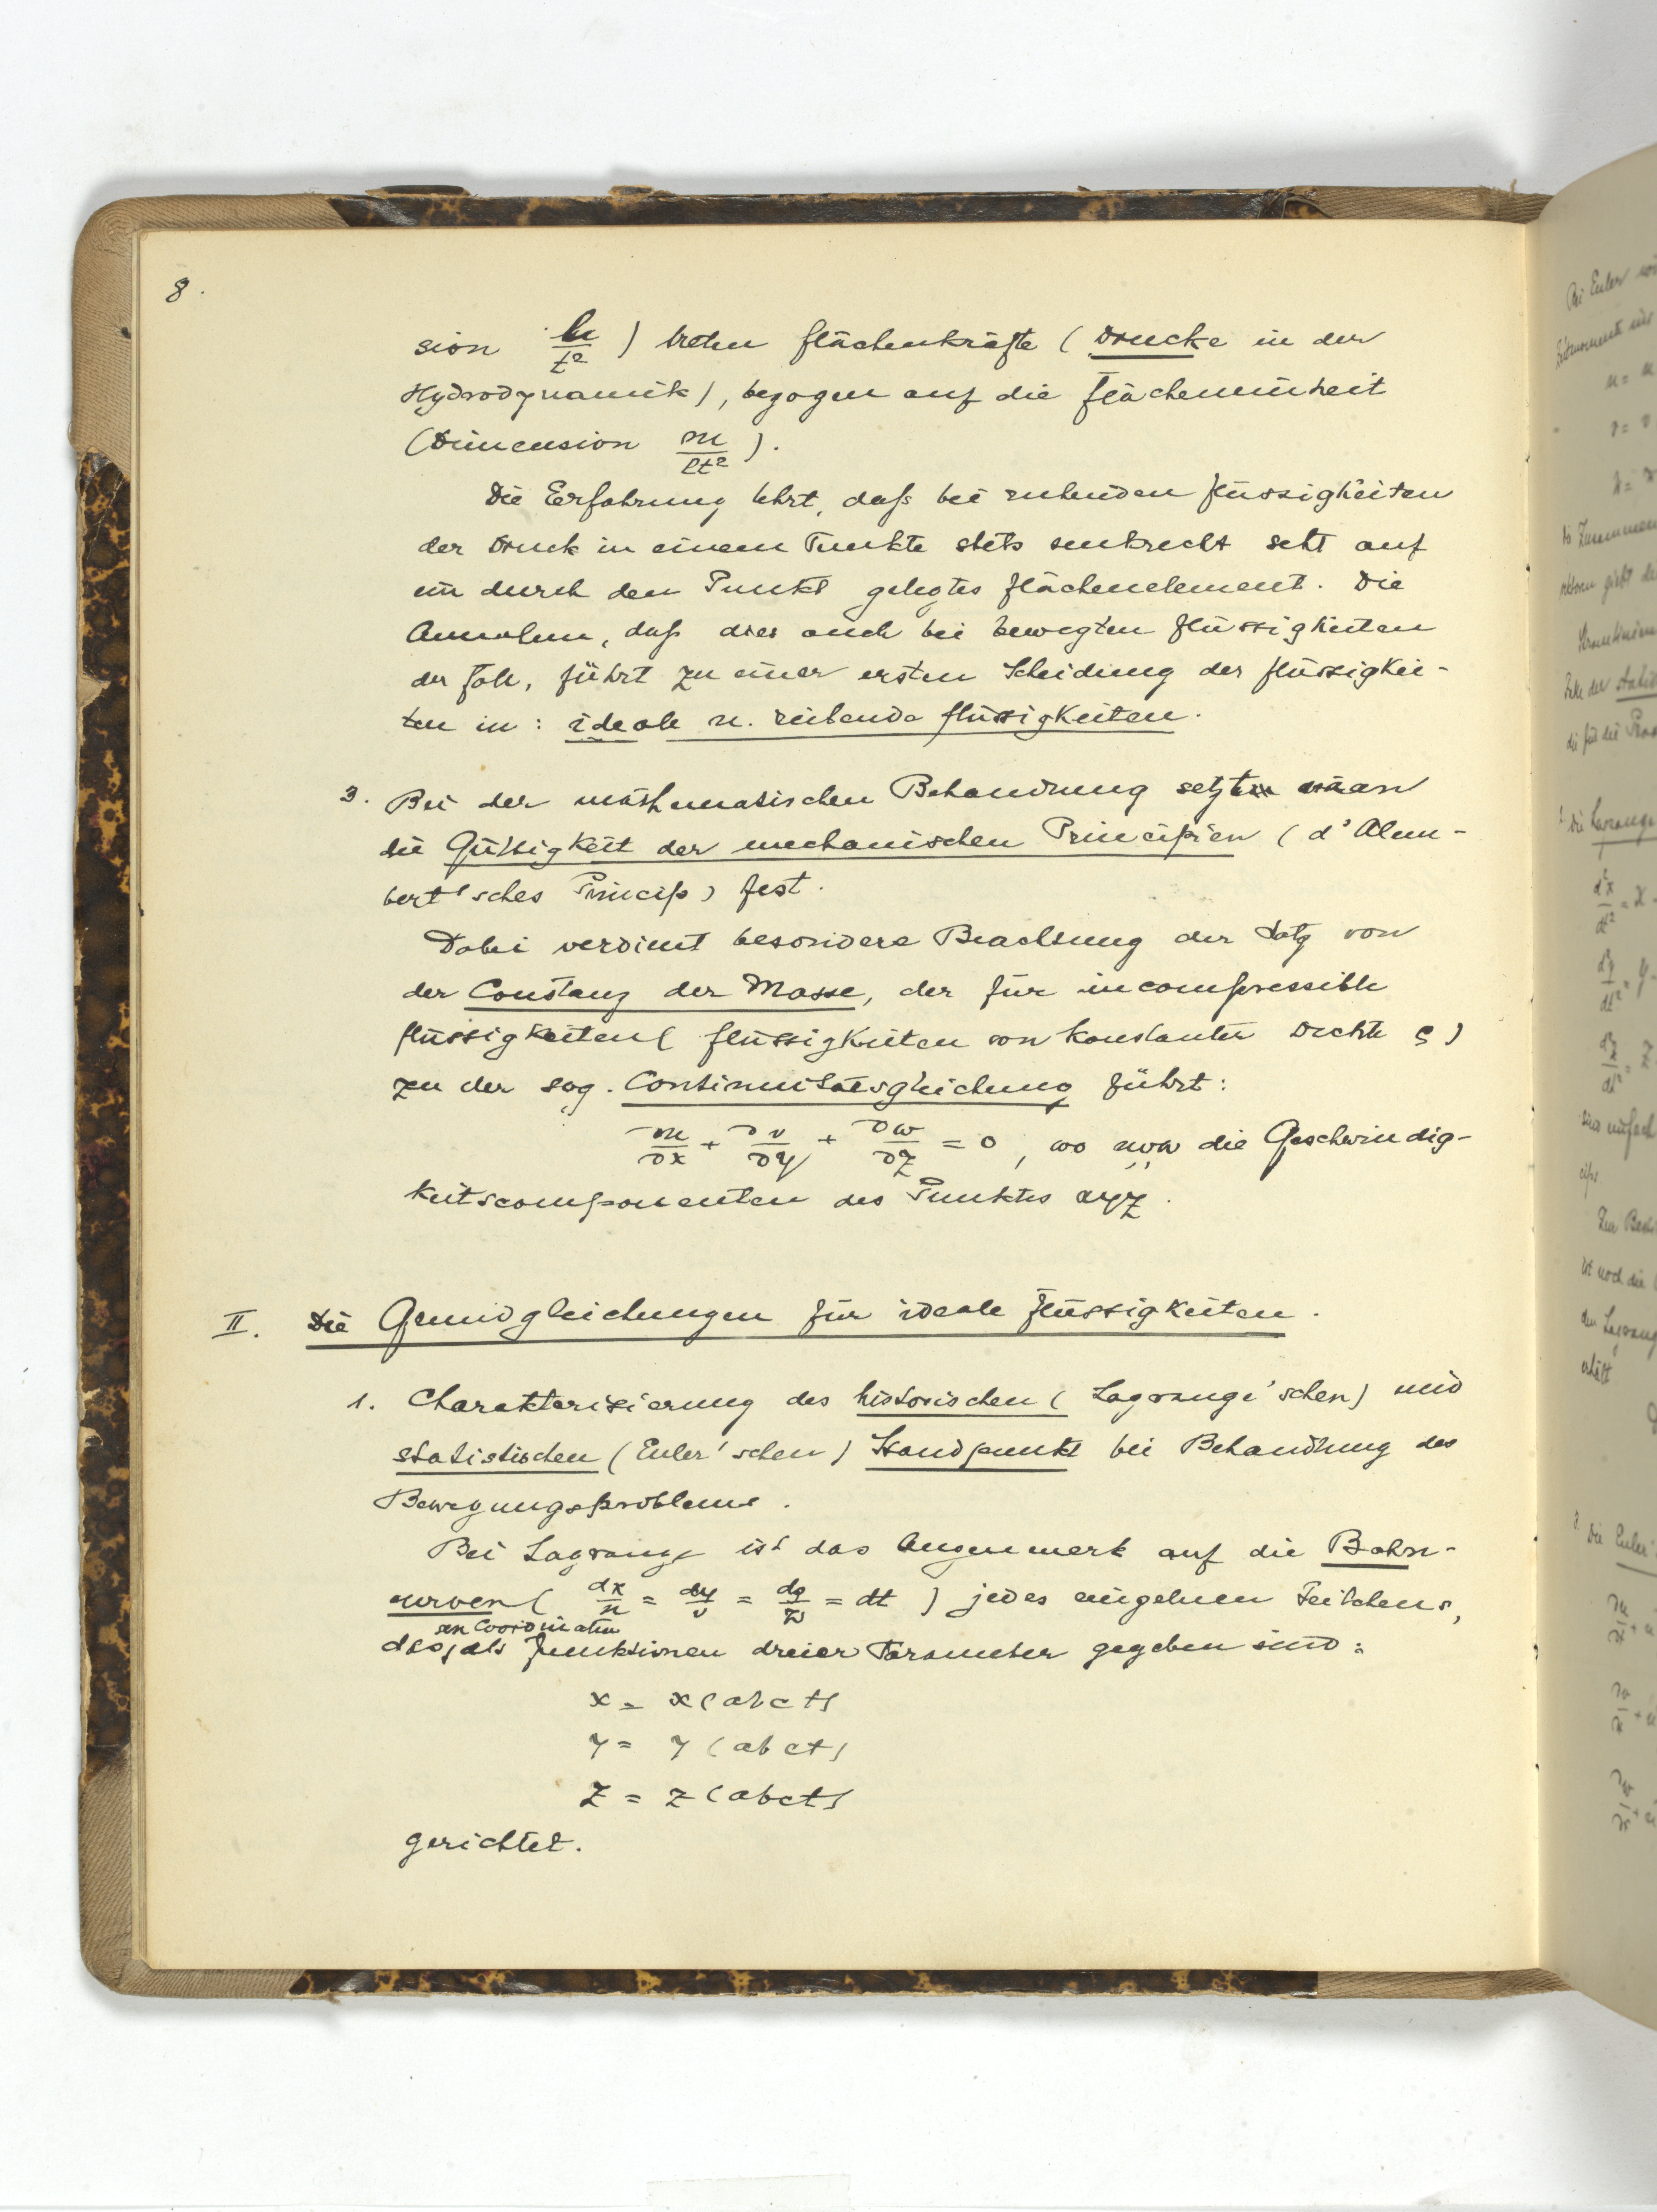 8.
sion lm/t² ) treten Flächenkräfte ( Drucke in der
Hydrodynamik), bezogen auf die Flächeneinheit
(Dimension m/lt² ).
Die Erfahrung lehrt, daß bei ruhenden Flüssigkeiten
der Druck in einem Punkte stets senkrecht seht auf
ein durch den Punkt gelegtes Flächenelement. Die
Annahme, daß dies auch bei bewegten Flüssigkeiten
der Fall, führt zu einer ersten Scheidung der Flüssigkei-
ten in : ideale u. reibende Flüssigkeiten.
3. Bei der mathematischen Behandlung setzt man
die Gültigkeit der mechanischen Principien ( d'Alem-
bert'sches Princip) fest.
Dabei verdient besondere Beachtung der Satz von
der Constanz der Masse, der für incompressible
Flüssigkeiten ( Flüssigkeiten von konstanter Dichte ρ )
zu der sog. Continuitätsgleichung führt:
∂u/∂x + ∂v/∂y + ∂w/∂z = 0 , wo u,v,w die Geschwindig-
keitscomponenten des Punktes xyz.
II. Die Grundgleichungen für ideale Flüssigkeiten.
1. Charakterisierung des historischen ( Lagrange'schen) und
statistischen (Euler'schen) Standpunkt bei Behandlung des
Bewegungsproblems.
Bei Lagrange ist das Augenmerk auf die Bahn-
curven ( dx/u = dy/v = dz/w = dt ) jedes einzelnen Teilchens,
Coordinaten
als Funktionen dreier Parameter gegeben sind:
x = x(abct)
y = y(abct)
z = z(abct)
gerichtet.
Bei Euler
u = u
v = v
die Lagrange
Die Euler'